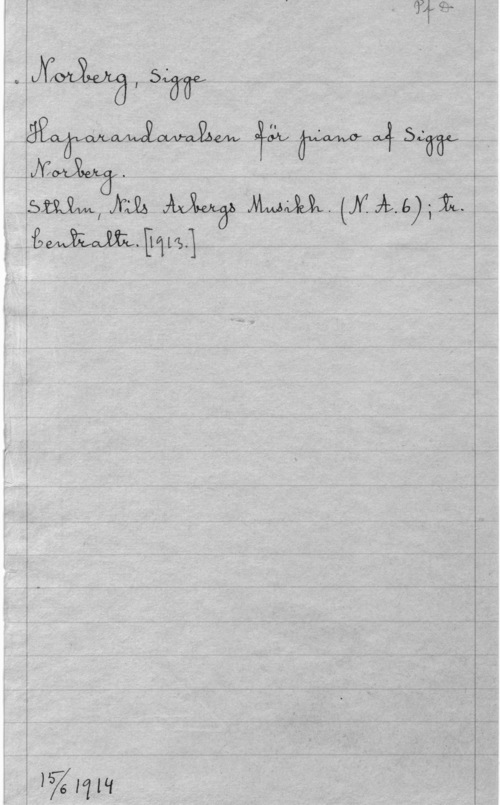 Pf D
Norberg, Sigge
Haparandavalsen för piano af Sigge
Norberg.
Sthlm, Nils Arbergs Musikh. (N. A. 6); tr.
Centraltr. [1913.]
15/6 1914